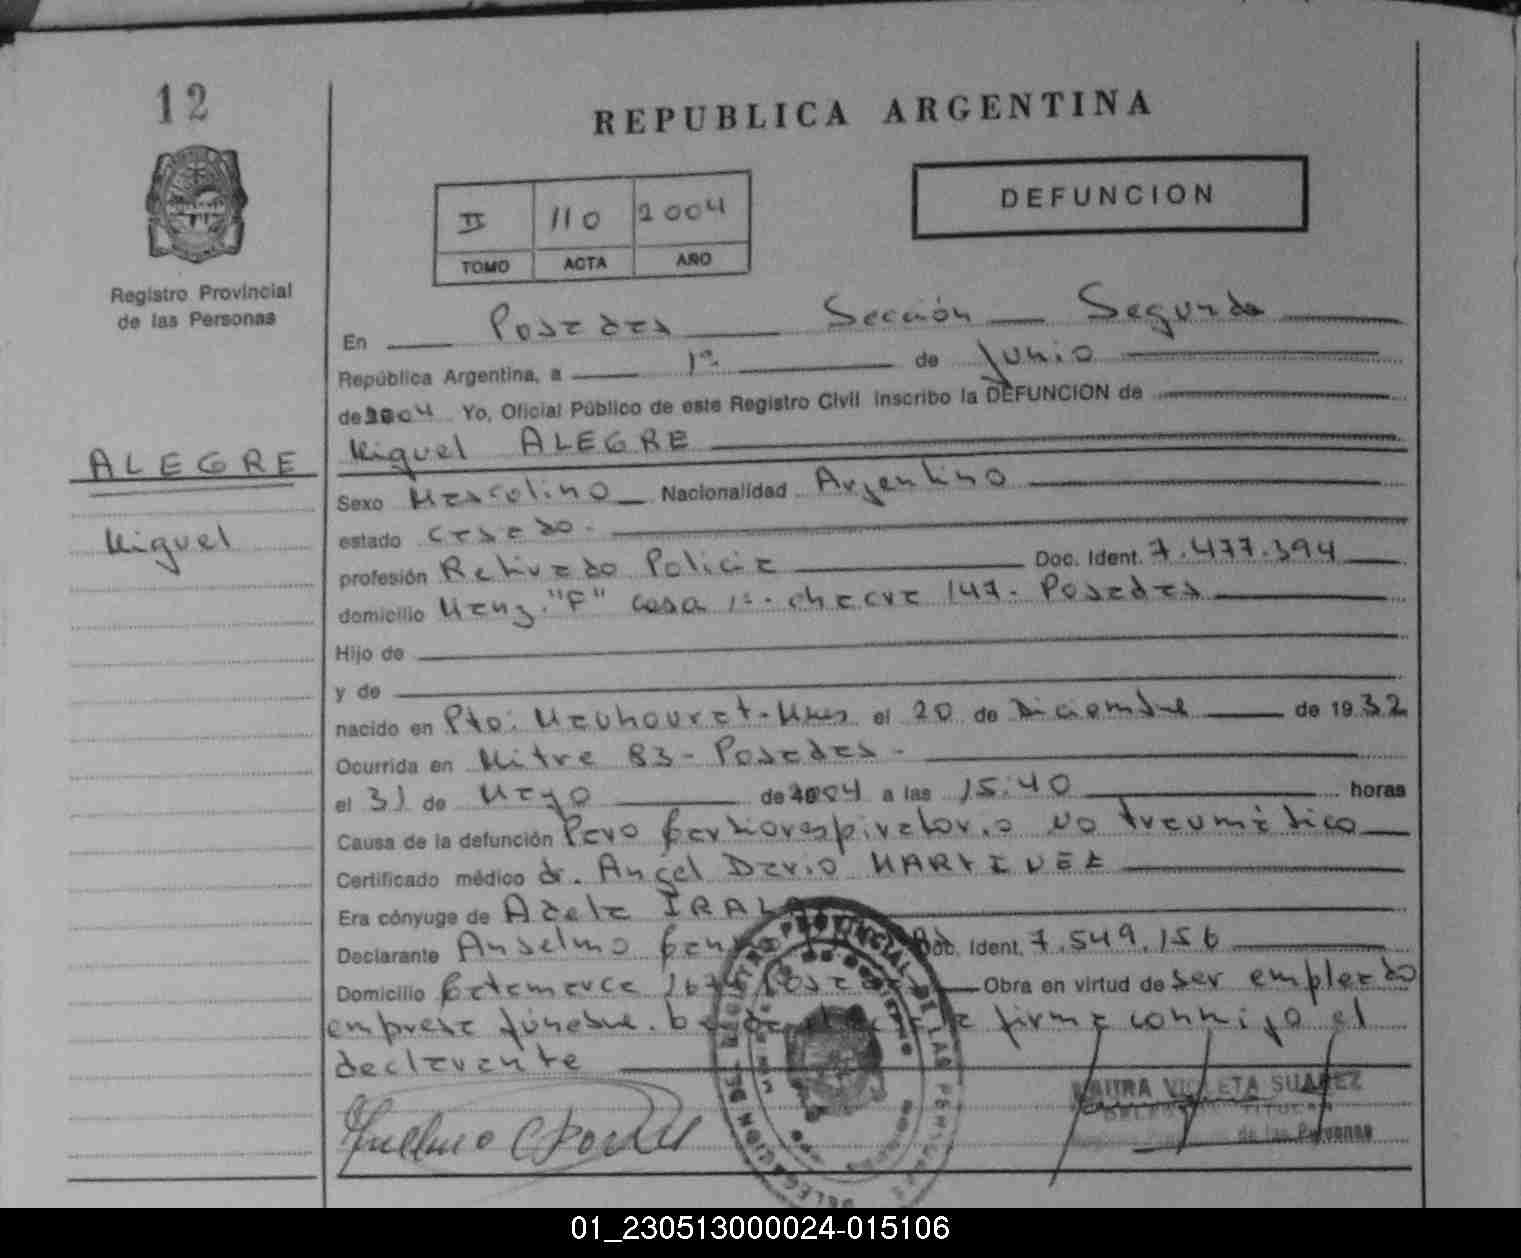 12
REPUBLICA ARGENTINA
DEFUNCION
II 110 2004
TOMO ACTA AÑO
Registro Provincial
de las Personas
En Posadas Sección Segunda
República Argentina, a 1º de Junio
de 2004 Yo, Oficial Público de este Registro Civil inscribo la DEFUNCION de
Miguel ALEGRE
ALEGRE
Miguel
Sexo Masculino Nacionalidad Argentino
estado casado.
profesión Retirado Policia Doc. Ident. 7.477.394
domicilio Manz. "F" casa 1º. chacra 147- Posadas
Hijo de
y de
nacido en Pto: - Mnes el 20 de Diciembre de 1932
Ocurrida en Mitre 83- Posadas -
el 31 de Mayo de 2004 a las 15:40 horas
Causa de la defunción Paro Cardiorespiratorio no traumático
Certificado médico dr. Angel Dario MARTINEZ
Era cónyuge de Adela IRALA
Declarante Anselmo Doc. Ident. 7.549.156
Domicilio Catamarca Posadas Obra en virtud de ser empleado
empresa fúnebre. firma conmigo el
declarante
MAURA VIOLETA SUAREZ
DELEGADA TITULAR
de las Personas
DELEGACION REGISTRO PROVINCIAL DE LAS PERSONAS
01_230513000024-015106